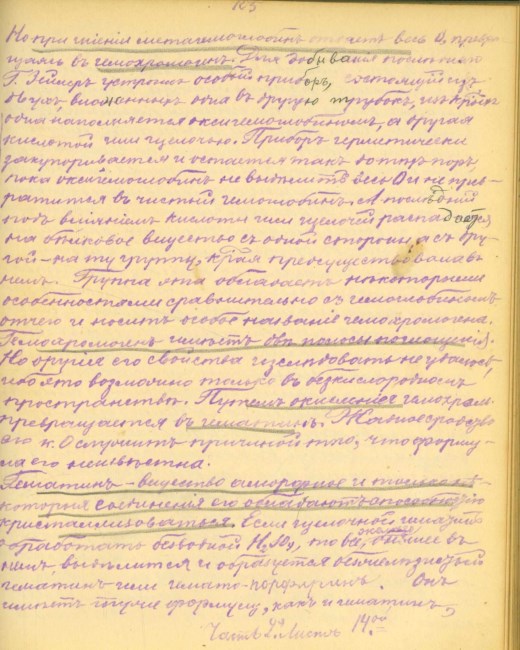 103
Но при гніеніи метагемоглобинъ отдаетъ весь О, превра-
щаясь въ гемохромогенъ. Для добыванія послѣдняго
Г. Зейлеръ устроилъ особый приборъ, состоящій изъ
двухъ, вложенныхъ одна въ другую трубокъ, изъ кᵒᵗᵒрыхъ
одна наполняется оксигемоглобиномъ, а другая
кислотой или щелочью. Приборъ герметически
закупоривается и остается такъ до тѣхъ поръ,
пока оксигемоглобинъ не выдѣлитъ весь О и не прев-
ратится въ чистый гемоглобинъ. А послѣдній
подъ вліяніемъ кислоты или щелочей распадается
на бѣлковое вещество съ одной стороны, а съ дру-
гой – на ту группу, края предсуществовала въ
немъ. Группа эта обладаетъ нѣкоторыми
особенностями сравнительно съ гемоглобиномъ
отчего и носитъ особое названіе гемохромогена.
Гемохромогенъ имѣетъ двѣ полосы поглощенія.
Но другія его свойства изслѣдовать не удалось,
ибо это возможно только въ безкислородномъ
пространствѣ. Путемъ окисленія гемохром.
превращается въ гематинъ. Жадное сродство
его к. О служитъ причиной то, что форму-
ла его неизвѣстна.
Гематинъ – вещество аморфное и только нѣ-
которыя соединенія его обладаютъ способностью
кристаллизоваться. Если щелочной гематинъ
обработать безводной H₂SO₄, то желѣзо, бывшее въ
немъ, выдѣлится и образуется безжелѣзистый
гематинъ или гемато-порфиринъ. Онъ
имѣетъ такую формулу, какъ и гематинъ,
Часть 2ая Листъ 14ый